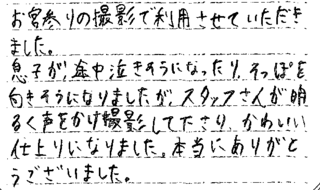 お宮参りの撮影で利用させていただき
ました。
息子が途中泣きそうになったり、そっぽを
向きそうになりましたが、スタッフさんが明
るく声をかけ撮影して下さり、かわいい
仕上りになりました。本当にありがと
うございました。